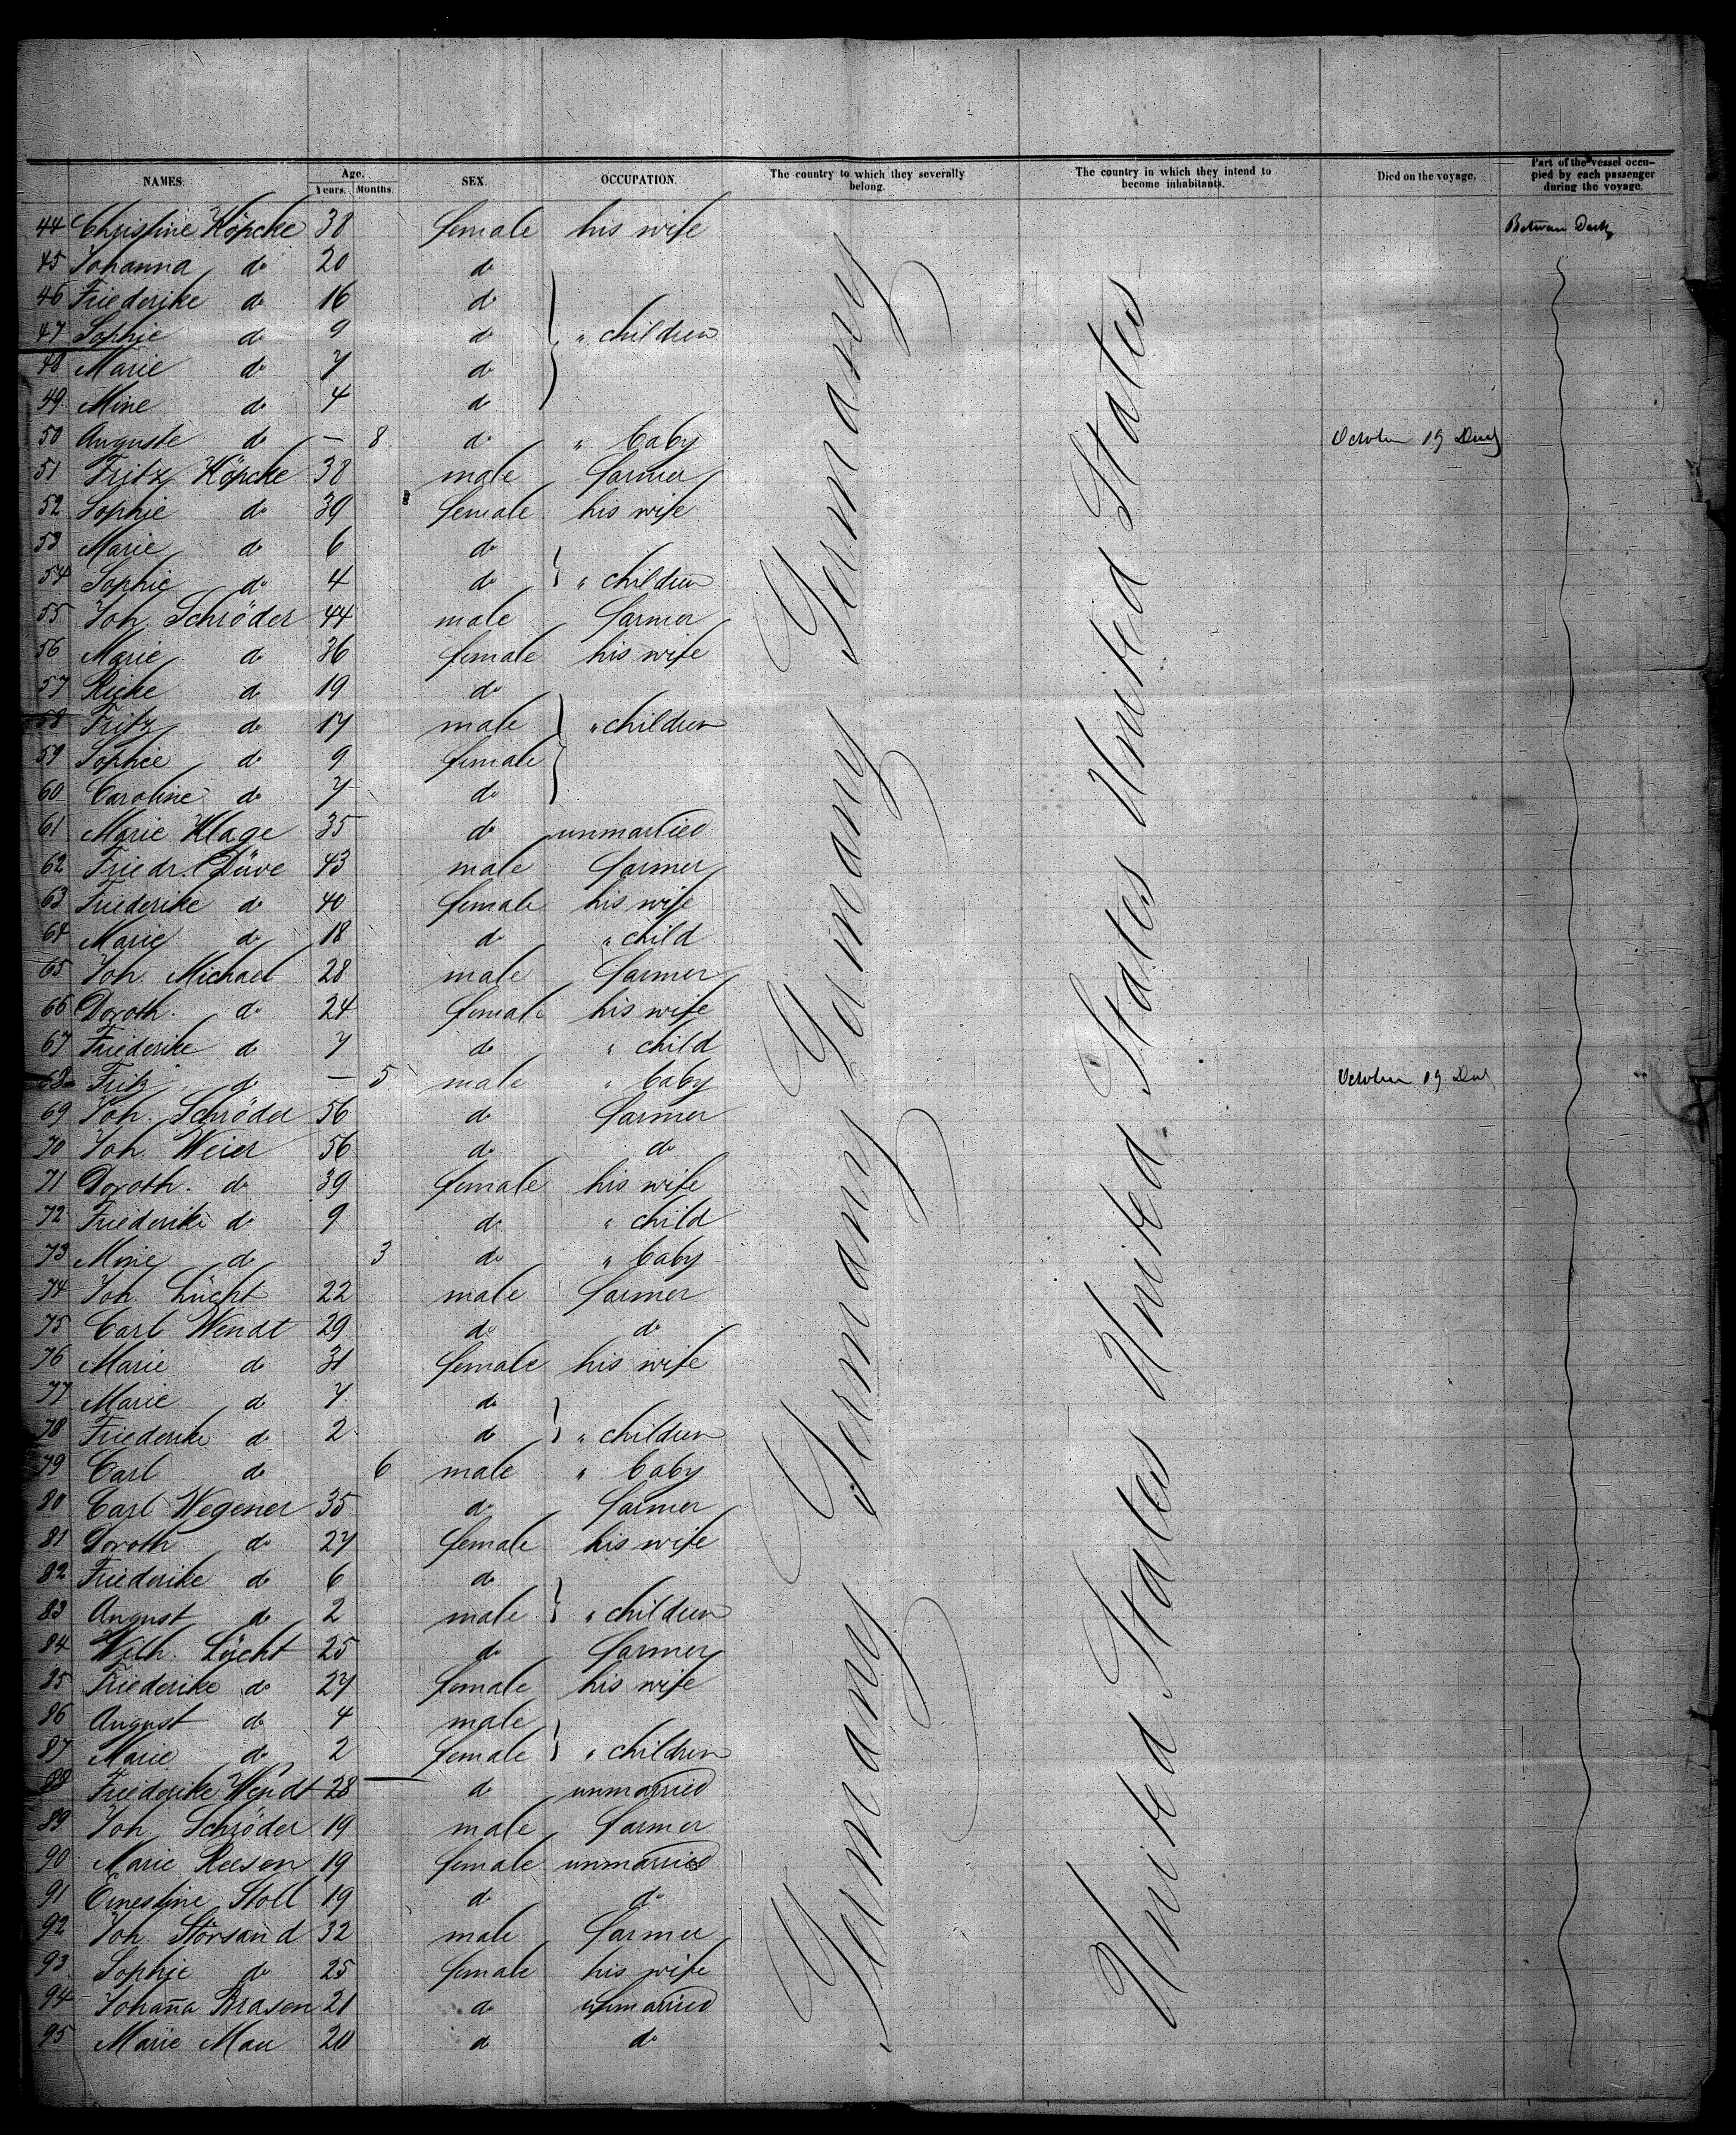 NAMES. Age. Years. Months. SEX. OCCUPATION. The country to which they severally belong. The country in which they intend to become inhabitants. Died on the voyage. Part of the vessel occupied by each passenger during the voyage.
44 Christine Köpcke 38 female his wife Between Deck
45 Johanna do 20 do
46 Friederike do 16 do
47 Sophie do 9 do " children
48 Marie do 7 do
49 Mine do 4 do
50 Auguste do — 8 do " baby October 19
51 Fritz Köpcke 38 male farmer
52 Sophie do 39 female his wife
53 Marie do 6 do
54 Sophie do 4 do " children
55 Joh. Schröder 44 male farmer
56 Marie do 36 female his wife
57 Rieke do 19 do
58 Fritz do 17 male " children
59 Sophie do 9 female
60 Caroline do 7 do
61 Marie Klage 35 do unmarried
62 Friedr. Düve 43 male farmer
63 Friederike do 40 female his wife
64 Marie do 18 do " child
65 Joh. Michael 28 male farmer
66 Doroth. do 24 female his wife
67 Friederike do 7 do " child
68 Fritz do — 5 male " baby October 19
69 Joh. Schröder 56 do farmer
70 Joh. Weier 56 do do
71 Doroth. do 39 female his wife
72 Friederike do 9 do " child
73 Mine do 3 do " baby
74 Joh. Lücht 22 male farmer
75 Carl Wendt 29 do do
76 Marie do 31 female his wife
77 Marie do 7 do
78 Friederike do 2 do " children
79 Carl do 6 male " baby
80 Carl Wegener 35 do farmer
81 Doroth do 27 female his wife
82 Friederike do 6 do
83 August do 2 male " children
84 Wilh. Lücht 25 do farmer
85 Friederike do 27 female his wife
86 August do 4 male
87 Marie do 2 female " children
88 Friederike Wendt 28 do unmarried
89 Joh. Schröder 19 male farmer
90 Marie Reesen 19 female unmarried
91 Ernestine Stoll 19 do do
92 Joh. Störsand 32 male farmer
93 Sophie do 25 female his wife
94 Johaña Brasen 21 do unmarried
95 Marie Mau 20 do do
Germany Germany Germany Germany
United States United States United States